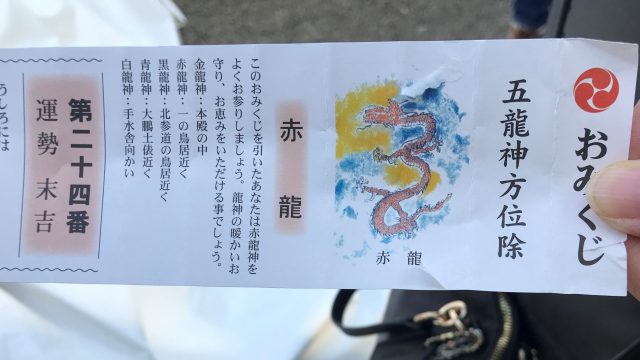 おみくじ
五龍神方位除
赤龍
赤龍
このおみくじを引いたあなたは赤龍神を
よくお参りしましょう。龍神の暖かいお
守り、お恵みをいただける事でしょう。
金龍神:本殿の中
赤龍神:一の鳥居近く
黒龍神:北参道の鳥居近く
青龍神:大鵬土俵近く
白龍神:手水舎向かい
第二十四番
運勢 末吉
うしろには